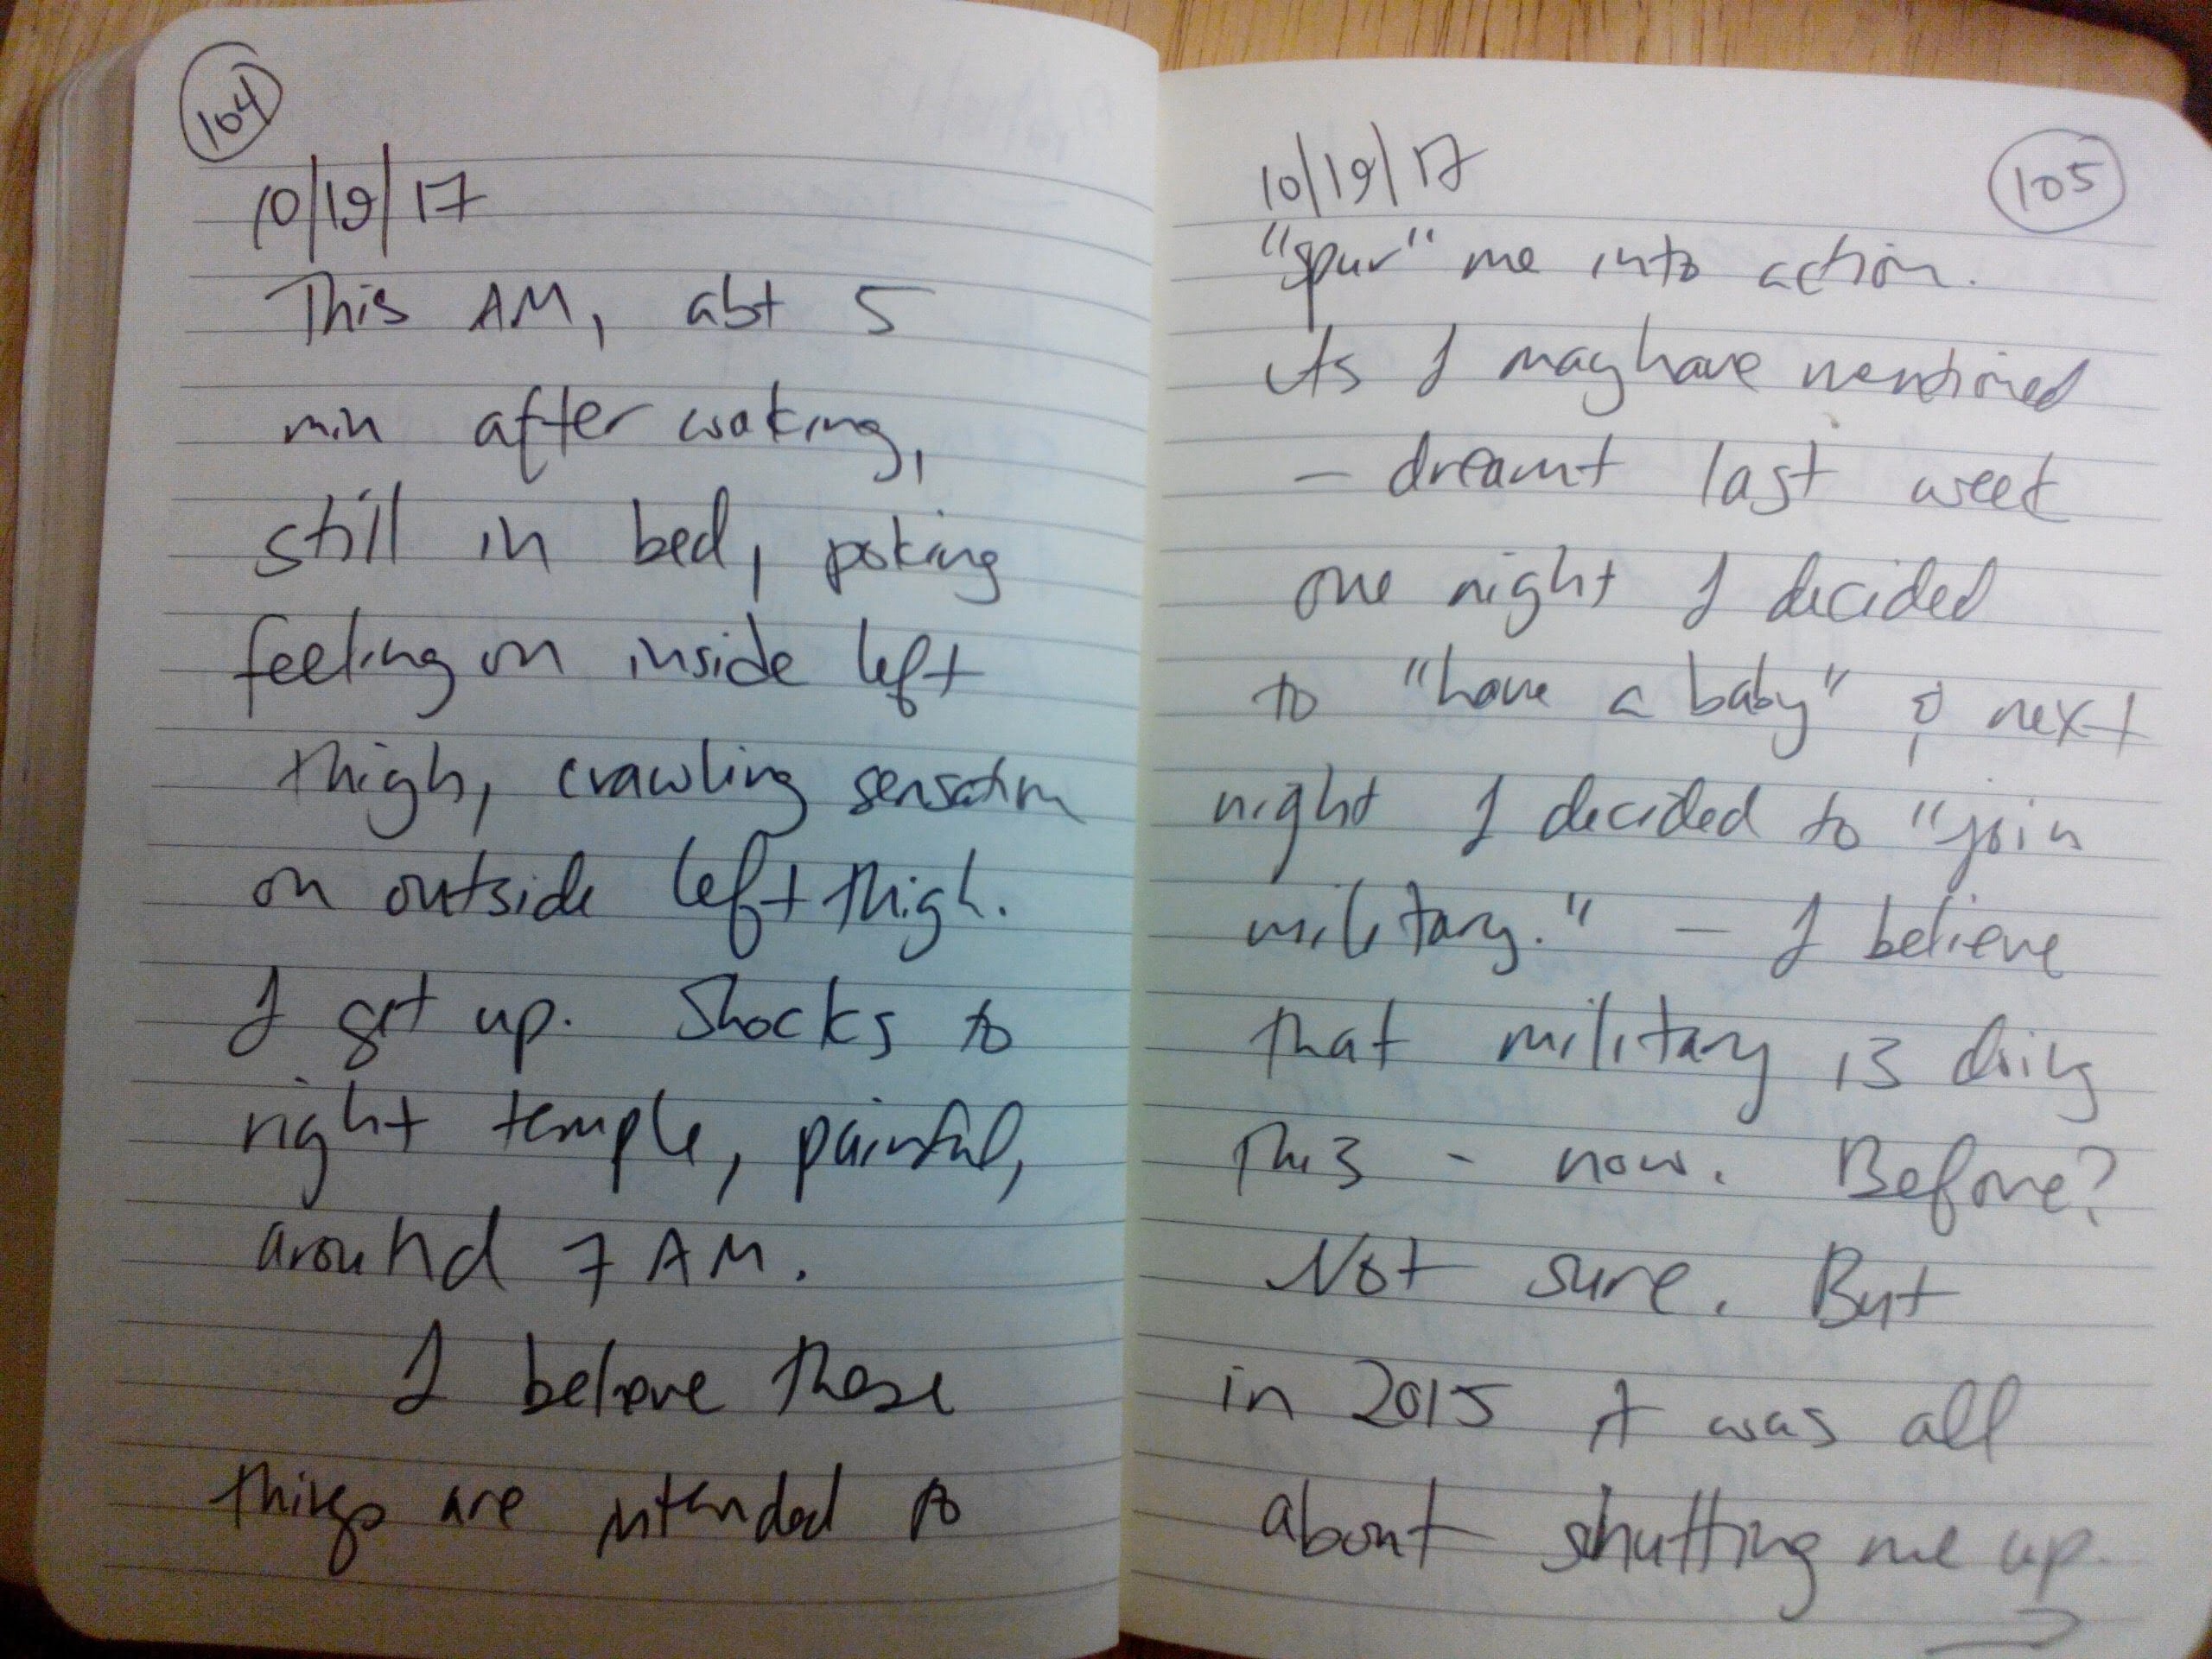 104
10/19/17
This AM, abt 5
min after waking,
still in bed, poking
feeling on inside left
thigh, crawling sensation
on outside left thigh.
I get up. Shocks to
right temple, painful,
around 7 AM.
I believe these
things are intended to
105
10/19/17
"spur" me into action.
As I may have mentioned
- dreamt last week
one night I decided
to "have a baby" & next
night I decided to "join
military." - I believe
that military is doing
this - now. Before?
Not sure. But
in 2015 it was all
about shutting me up.
→